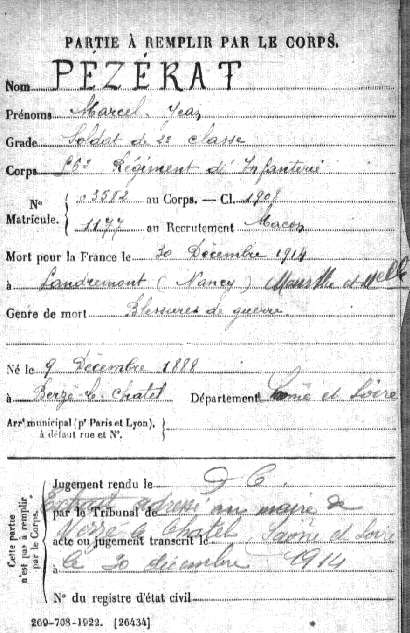 PARTIE À REMPLIR PAR LE CORPS.
Nom PÉZÉRAT
Prénoms Marcel Jean
Grade Soldat de 2e classe
Corps Régiment d'Infanterie
N° Matricule. { 03582 au Corps. — Cl. 1908
1177 au Recrutement Macon
Mort pour la France le 30 Décembre 1914
à Landremont (Nancy) Meurthe et Mlle
Genre de mort Blessures de guerre
Né le 9 Décembre 1888
à Berzé-le-Chatel Département Saône et Loire
Arrt municipal (pr Paris et Lyon), à défaut rue et N°.
Cette partie n'est pas à remplir par le Corps.
Jugement rendu le
par le Tribunal de
Extrait adressé au maire de
acte ou jugement transcrit le
Berzé le Chatel Saône et Loire
à le 30 décembre 1914
N° du registre d'état civil
269-708-1922. [26434]